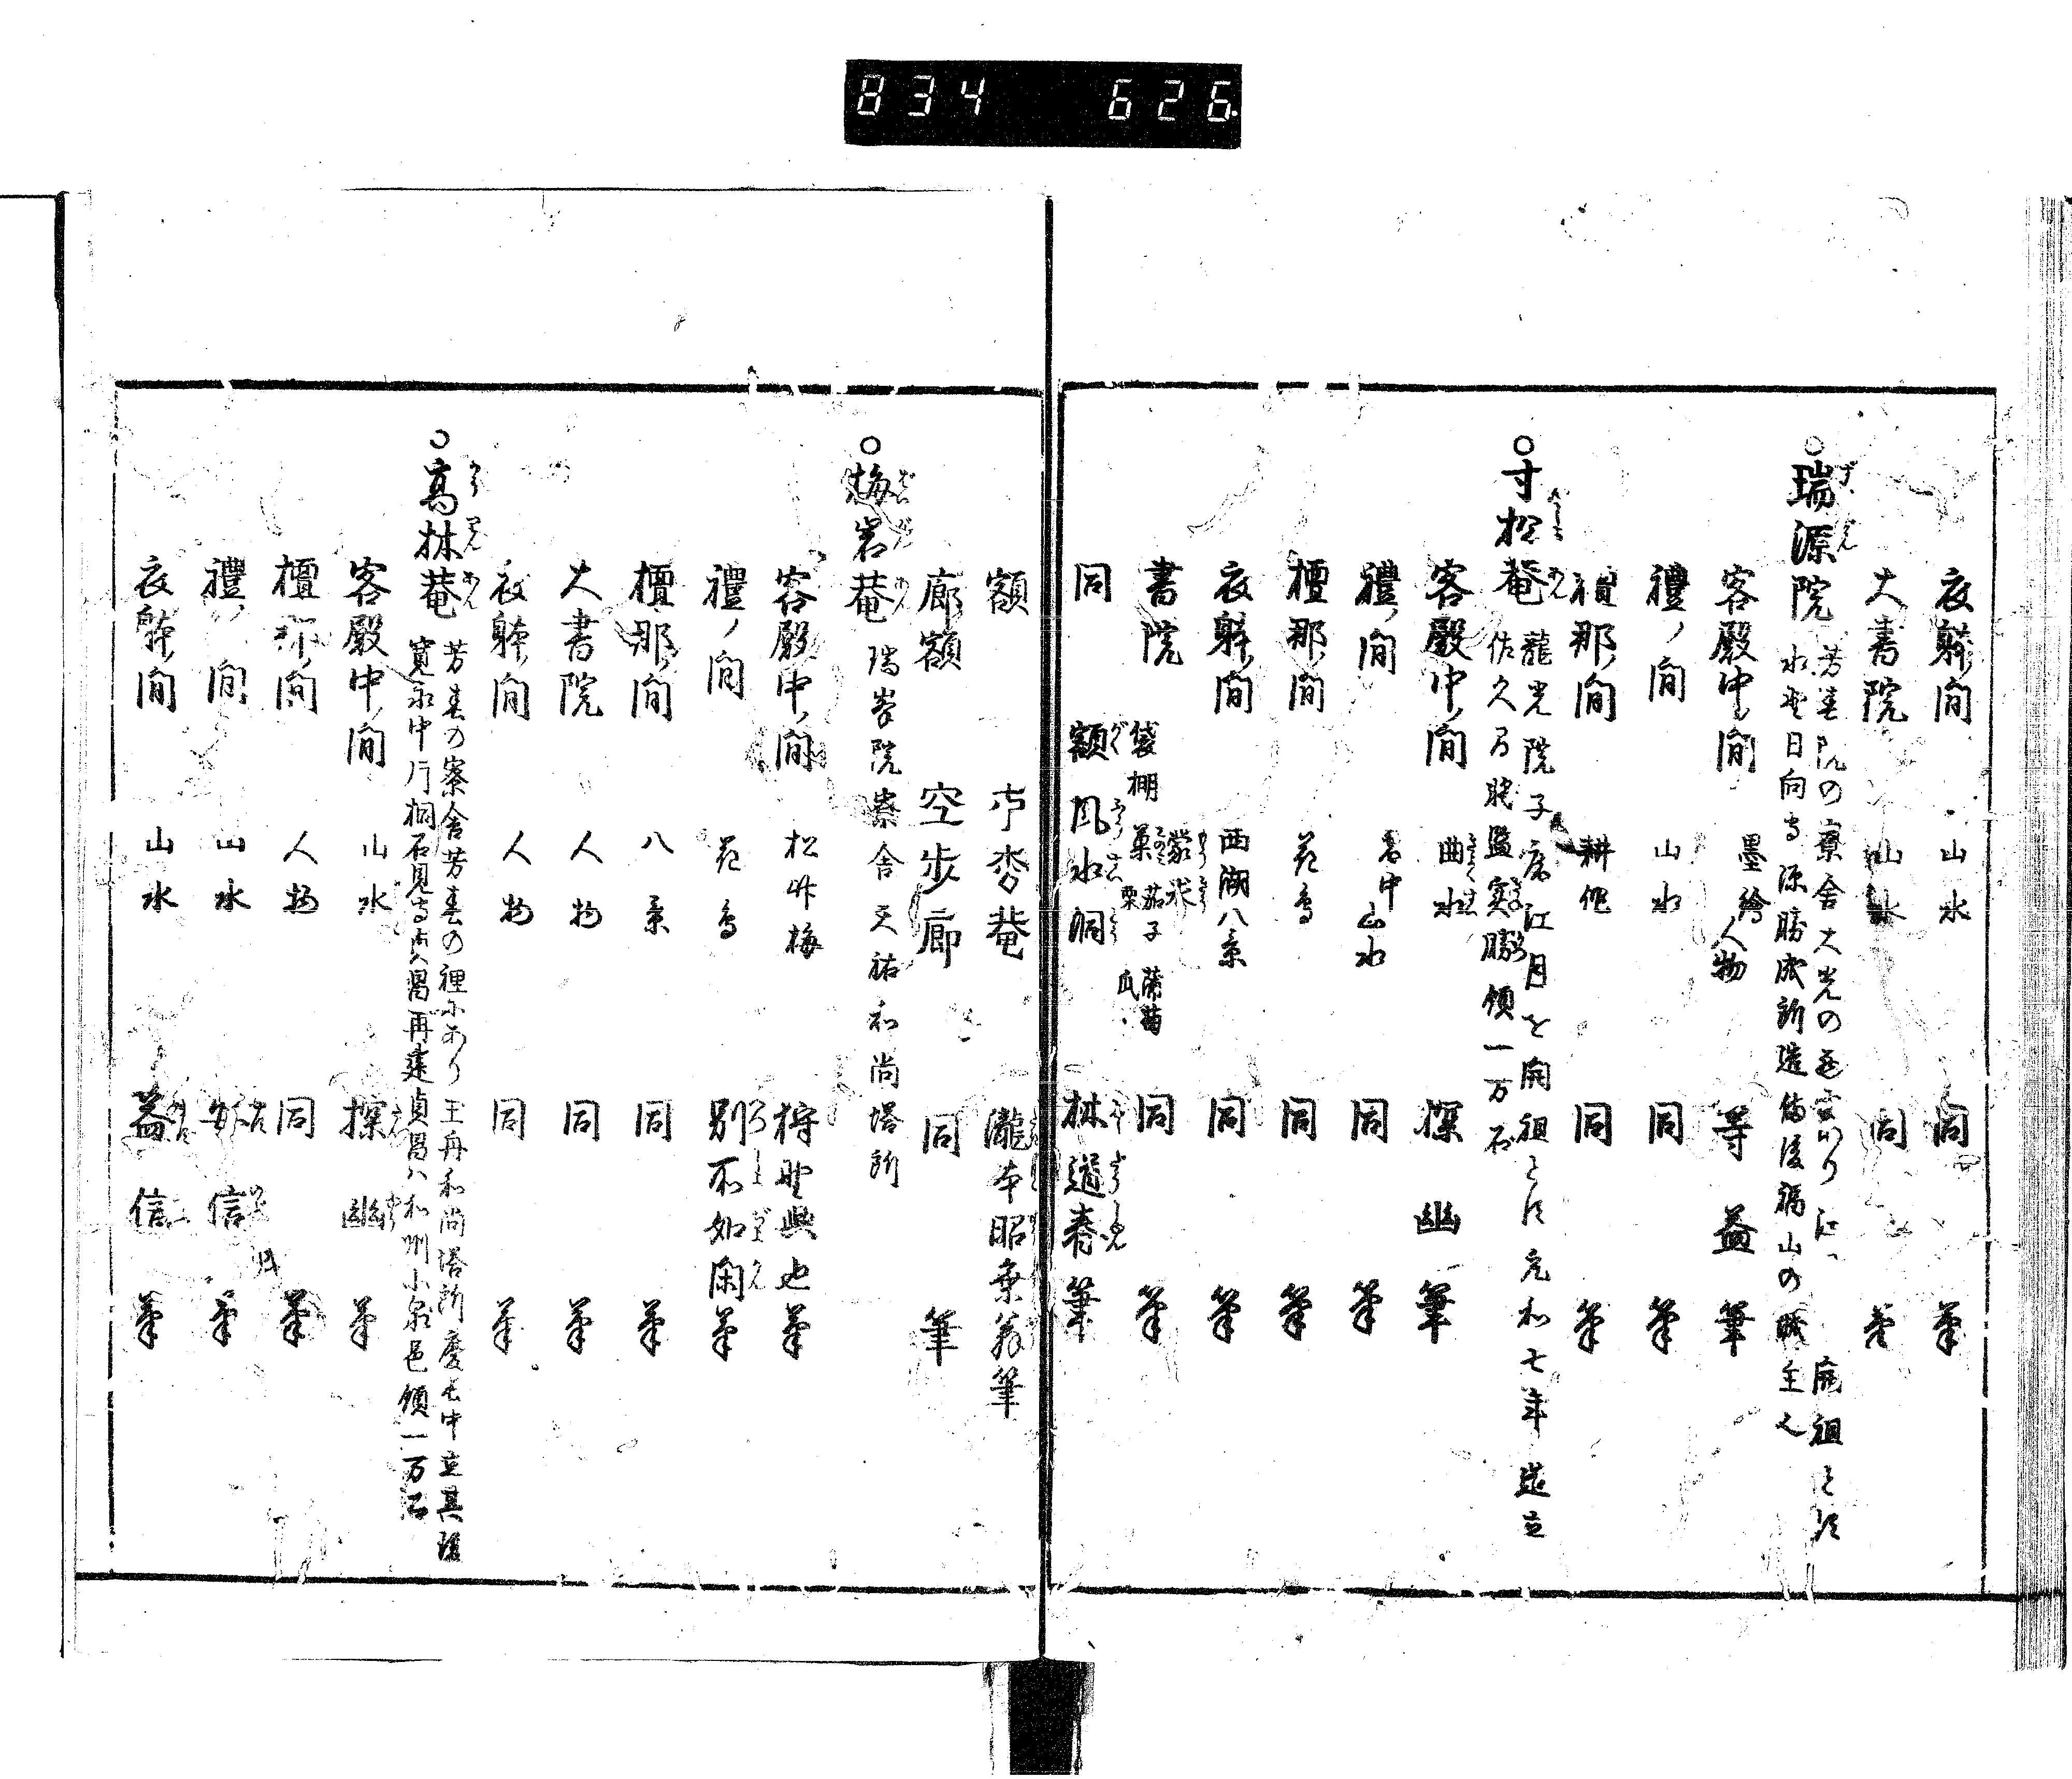 834 626
衣躰ノ間 山水 同 筆
大書院 山水 同 筆
○瑞源院 芳春院の寮舎大光の
水野日向守源勝成所造備後福山の城主
開祖とす
客殿中ノ間 墨繪人物 等益筆
禮ノ間 山水 同 筆
檀那ノ間 耕作 同 筆
○寸松菴 龍光院子庵江月を開祖とす元和七年造立
佐久間将監実勝領一万石
客殿中ノ間 曲水 探幽筆
禮ノ間 雪中山水 同 筆
檀那ノ間 花鳥 同 筆
衣躰ノ間 西湖八景 同 筆
書院 袋棚 菓 茄子 栗 葡萄 瓜 同 筆
同 額 風水洞 林道春筆
額 瀧本昭乗翁筆
廊額 空歩廊 同 筆
○梅岩菴 瑞峯院寮舎天祐和尚塔所
客殿中ノ間 松竹梅 狩野興也筆
禮ノ間 花鳥 別不如閑筆
檀那ノ間 八景 同 筆
大書院 人物 同 筆
衣躰ノ間 人物 同 筆
○高林菴 芳春の寮舎芳春の裡にあり玉舟和尚塔所慶長中立其後
寛永中片桐石見守貞昌再建貞昌ハ和州小泉邑領一万石
客殿中ノ間 山水 探幽筆
檀那ノ間 人物 同 筆
禮ノ間 山水 安信筆
衣躰ノ間 山水 益信筆